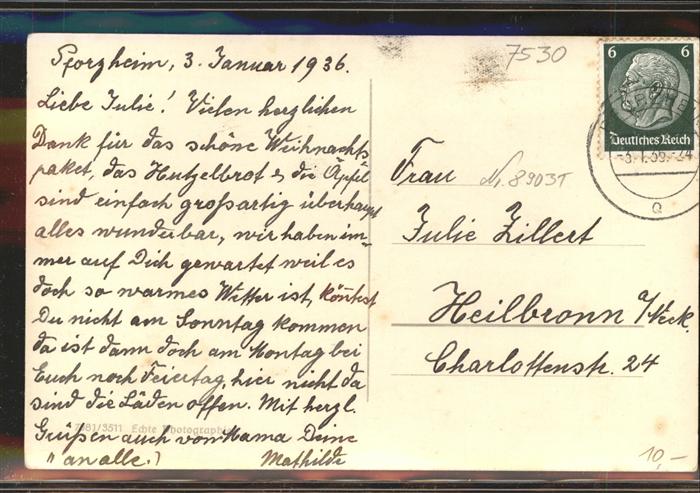 Pforzheim, 3. Januar 1936.
Liebe Julie! Vielen herzlichen
Dank für das schöne Weihnachts-
paket, das Hutzelbrot & die Äpfel
sind einfach großartig überhaupt
alles wunderbar, wir haben im-
mer auf Dich gewartet weil es
doch so warmes Wetter ist, köntest
Du nicht am Sonntag kommen
da ist dann doch am Montag bei
Euch noch Feiertag, hier nicht da
sind die Läden offen. Mit herzl.
Grüßen auch von Mama Deine
" an alle.) Mathilde
7981/3511 Echte Photographie
7530
6 6
Deutsches Reich
Q
Frau
Nr 8903T
Julie Zillert
Heilbronn a/Neck.
Charlottenstr. 24
10,-